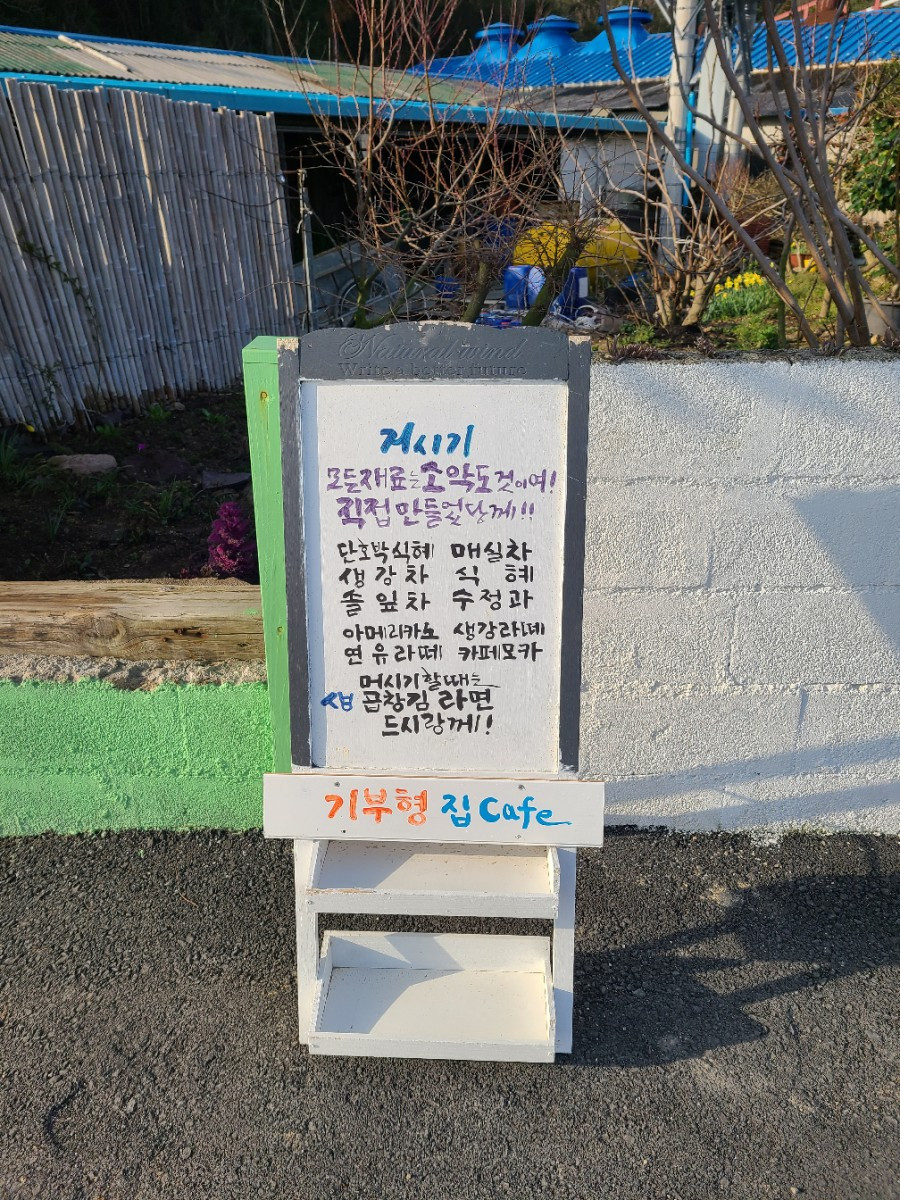 Natural wind
Write a better future
거시기
모든재료는 소악도것이여!
직접 만들었당께!!
단호박식혜 매실차
생강차 식혜
솔잎차 수정과
아메리카노 생강라떼
연유라떼 카페모카
머시기할때는
생 곱창김 라면
드시랑께!
기부형 집 Cafe